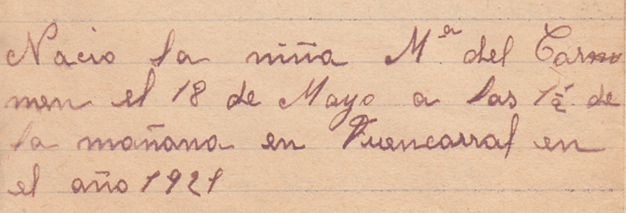 Nacio la niña Mª del Car
men el 18 de Mayo a las 1 de
la mañana en Fuencarral en
el año 1921